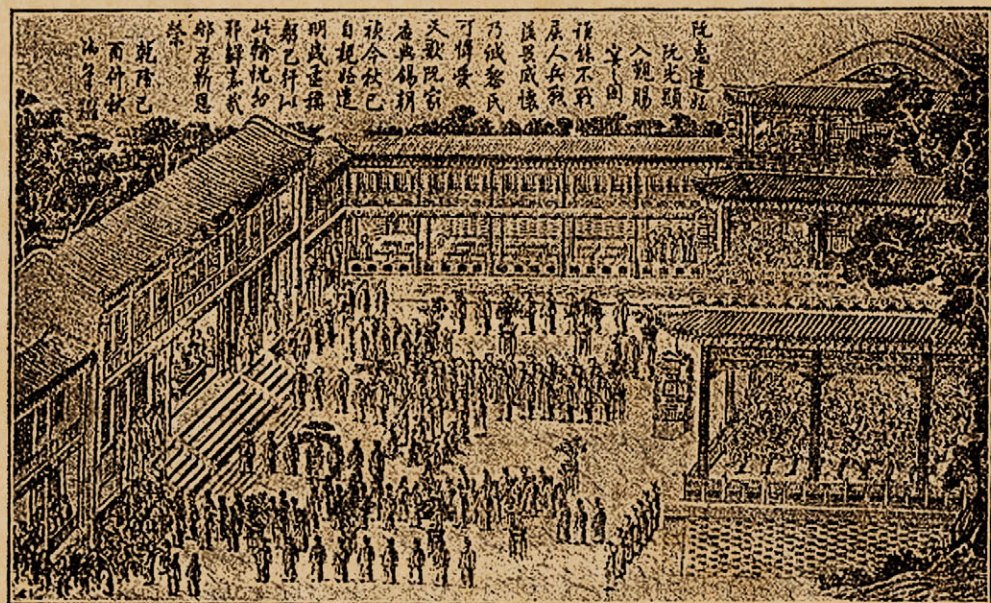 阮惠遣姪
阮光顯
入覲賜
宴之圖
誰能不戰
屈人兵戰
後畏威懷
乃誠黎氏
可憐受
天厭阮家
應與錫朝
禎今秋已
自親姪遣
明歲還稱
躬己行似
此輸忱
那忍靳恩
榮
乾隆己
酉仲秋
御筆